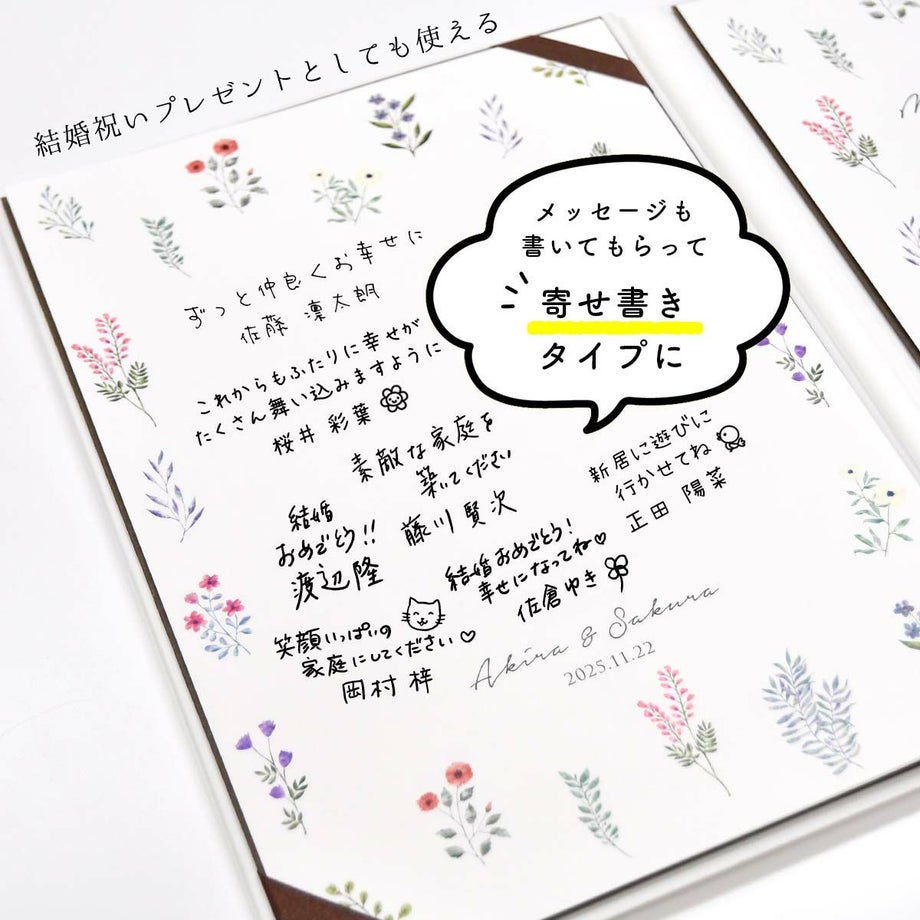 結婚祝いプレゼントとしても使える
メッセージも
書いてもらって
寄せ書き
タイプに
ずっと仲良くお幸せに
佐藤 凛太朗
これからもふたりに幸せが
たくさん舞い込みますように
桜井 彩葉
素敵な家庭を
築いてください
藤川 賢次
新居に遊びに
行かせてね
正田 陽菜
結婚
おめでとう!!
渡辺隆
結婚おめでとう!
幸せになってね♡
佐倉ゆき
笑顔いっぱいの
家庭にしてください♡
岡村 梓
Akira & Sakura
2025.11.22